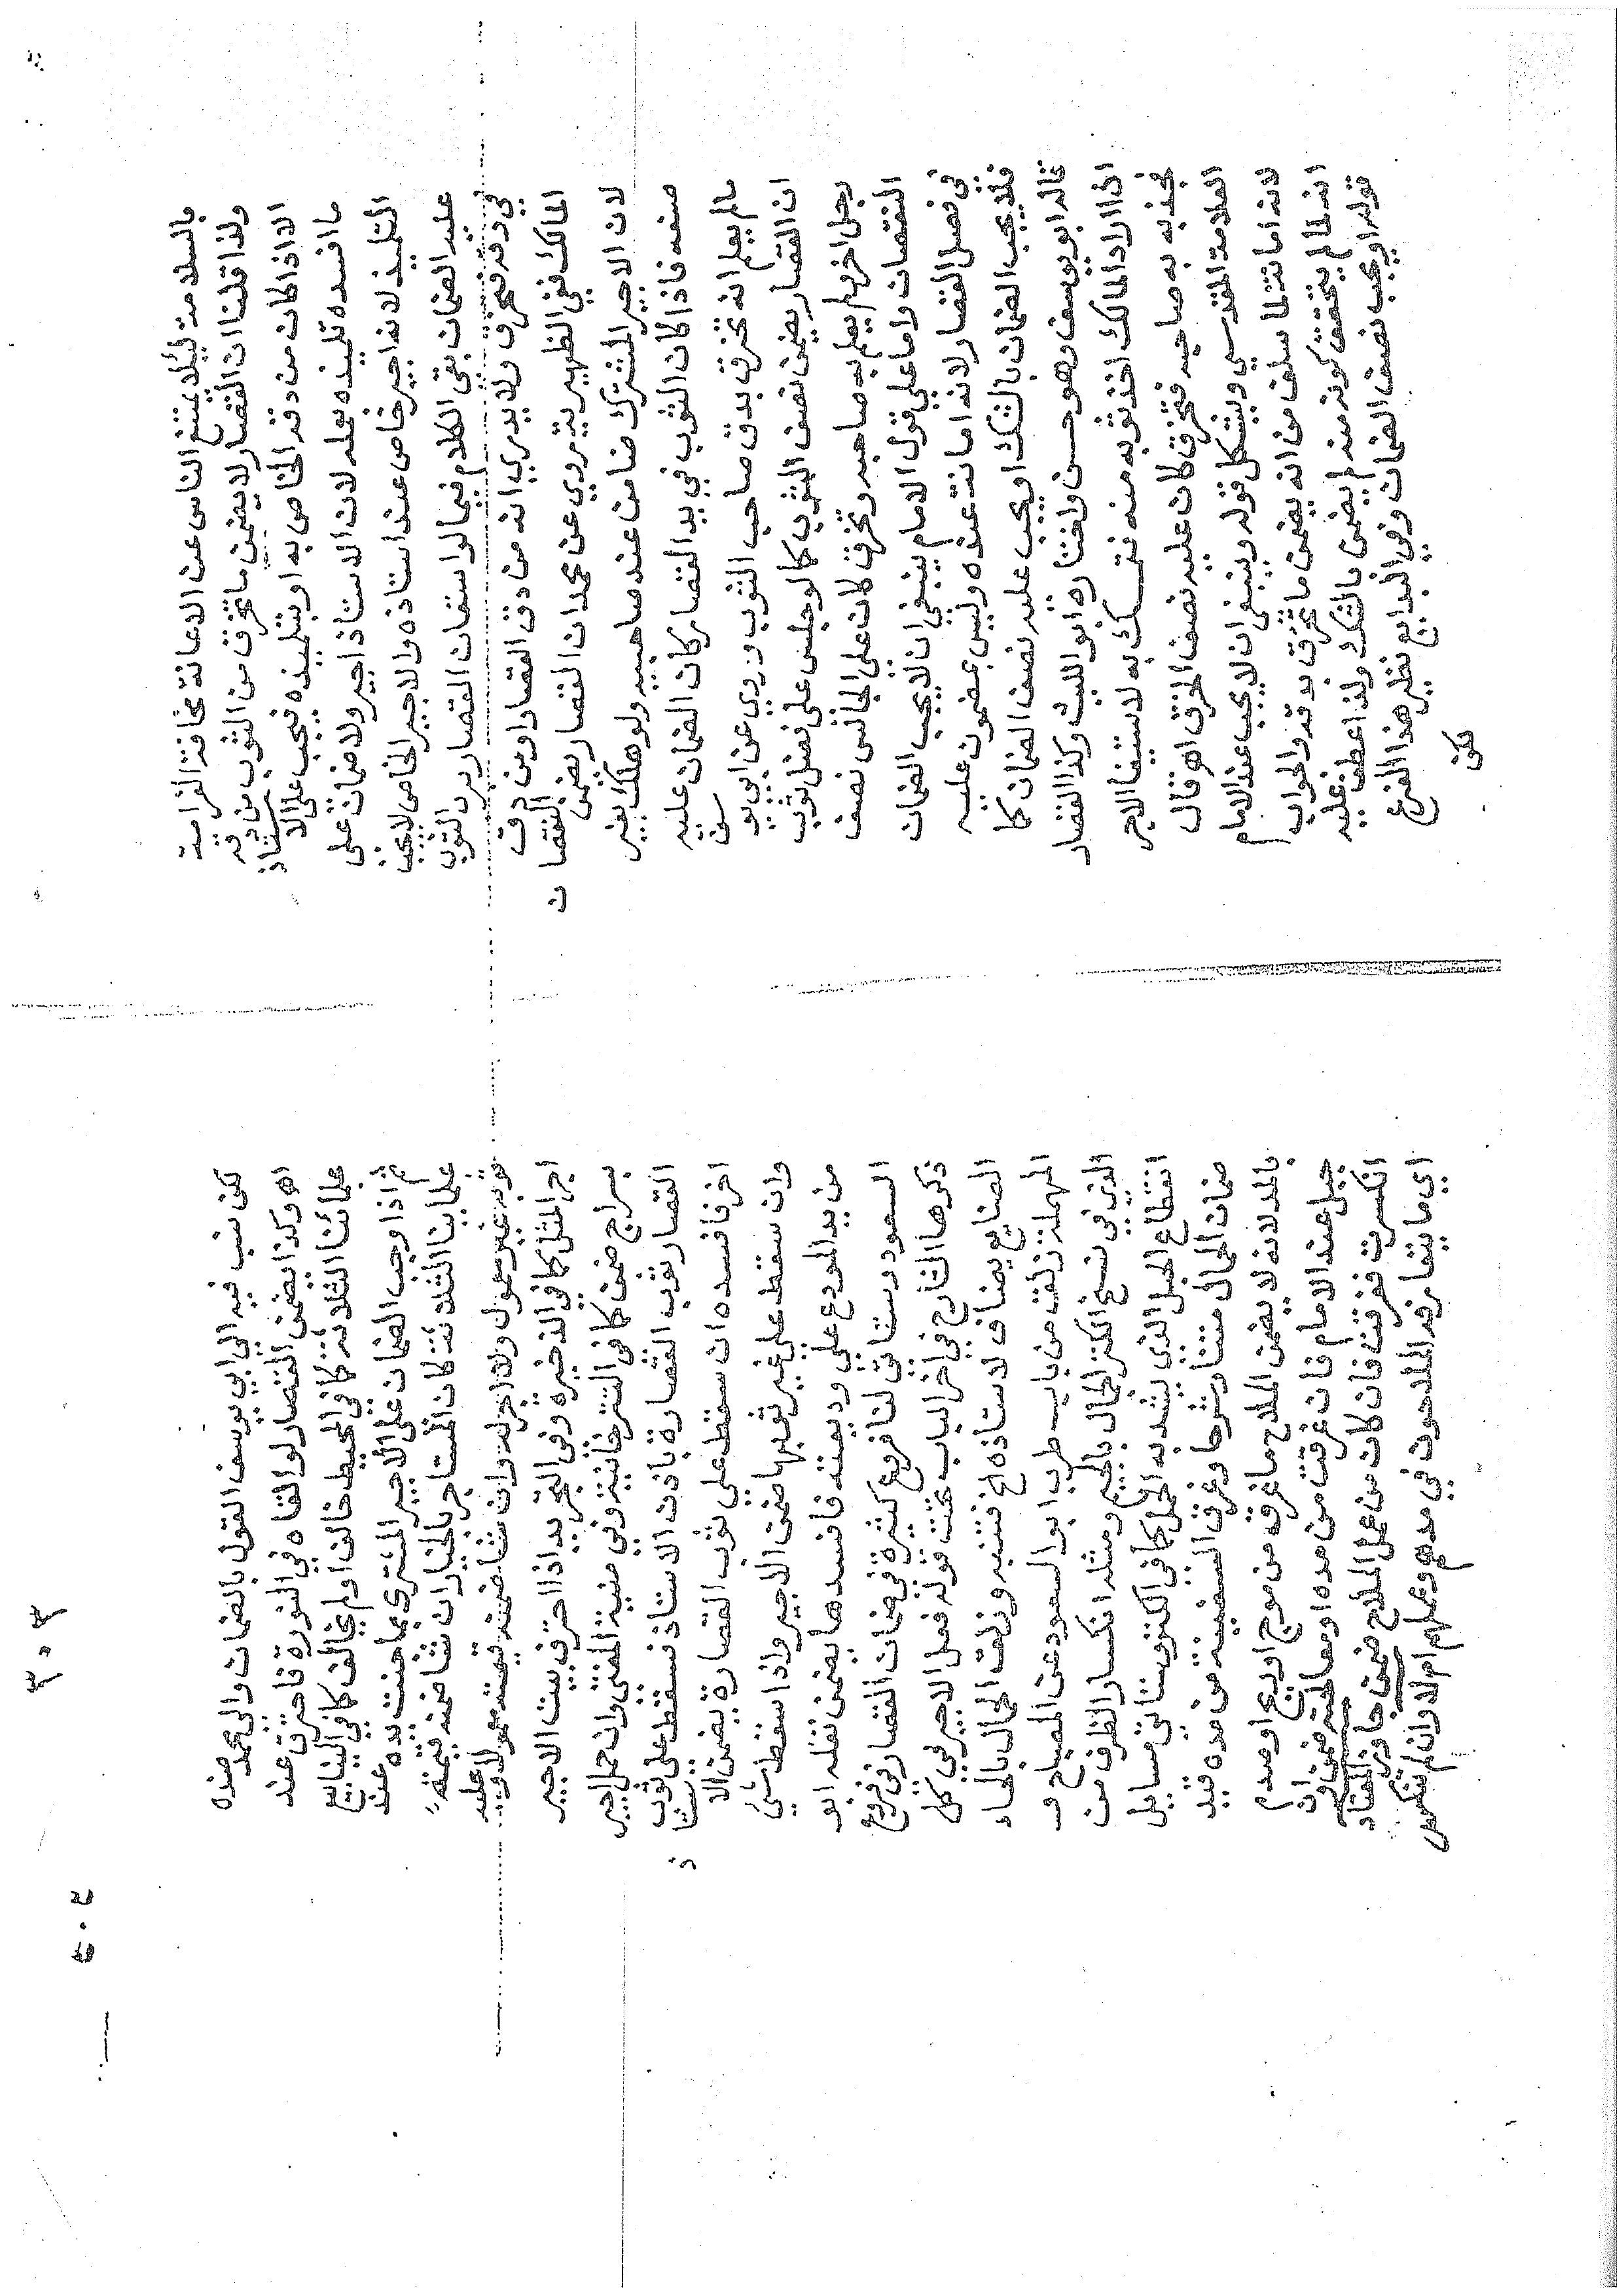 بالسلامة ليلا يمتنع الناس عن الاعانة مخافة الغرامة
ولذا قلنا ان القصار لا يضمن ما تخرق من الثوب من دقه
الا اذا كان من دقه الخاص به او بتلميذه فيجب على الاستاذ
ما افسده تلميذه بعمله لان الاستاذ اجير ولا ضمان على
التلميذ لانه اجير خاص عند استاذه والاجير الخاص لا يجب
عليه الضمان بقي الكلام فيما لو استعان القصار برب الثوب
في دقه فتخرق ولا يدري انه من دق القصار او من دق
المالك ففي الظهيرية روي عن محمد ان القصار يضمن النقصان
لان الاجير المشترك ضامن عند صاحبيه ولو هلك بغير
صنعه فاذا كان الثوب في يد القصار كان الضمان عليه
ما لم يعلم انه تخرق بدق صاحب الثوب وروي عن ابي يوسف
ان القصار يضمن نصف الثوب كما لو جلس على نعل ثوب
رجل اخر لم يعلم به صاحبه وتخرق كان على الجالس نصف
النقصان واما على قول الامام ينبغي ان لا يجب الضمان
في فصل القصار لانه امانة عنده وليس بمضمون عليه
فلا يجب الضمان بالشك او يجب عليه نصف الضمان كما
قاله ابو يوسف وهو حسن واختاره ابو الليث وكذا القصار
اذا اراد المالك اخذ ثوبه منه فتمسك به لاستيفا الاجر
فجذبه صاحبه فتخرق كان عليه نصف الخرق اهـ قال
العلامة المقدسي ويشكل قوله وينبغي ان لا يجب عند الامام
لانه امانة لما سلف من انه يضمن ما تخرق بدقه والجواب
انه لما لم يتحقق كونه منه لم يضمن بالشك ولذا عطف عليه
قوله او يجب نصف الضمان وفي البدايع نظير هذا الفرع
لكن
٣٠٣
لكن نسب فيه الى ابي يوسف القول بالضمان والى محمد ضده
اهـ وكذا يضمن القصار لو القاه في النورة فاحترق عند
علمائنا الثلاثة كما في المحيط خالف او لم يخالف كما في الينابيع
ثم اذا وجب الضمان على الاجير المشترك بما جنت يده عند
علمائنا الثلاثة كان المستاجر بالخيار ان شا ضمنه قيمة
ثوبه غير معمول ولا اجر له وان شا ضمنه قيمته معمولا وعليه
اجر المثل كما في الذخيرة وفي التجريد اذا احترق بيت الاجير
بسراج ضمن كما في التترخانية وفي منية المفتي وان حمل اجير
القصار ثوب القصارة باذن الاستاذ فسقط على ثوب
اخر فافسده ان سقط على ثوب القصارة يضمن الاستاذ
وان سقط على غير ثيابها ضمن الاجير واذا سقط شيئ
من يد المودع على وديعته فافسدها يضمن نقله ابو
السعود وسياتي لنا فروع كثيرة في ضمان القصار في فروع
ذكرها الشارح في اخر الباب تحت قوله فعل الاجير في كل
الصنايع يضاف لاستاذه الخ فتنبه وزلق الحمال بالحاء
المهملة زلقت من باب طرب ابو السعود عن المصباح و
الذي في نسخ الكنز الجمال بالجيم ومثله انكسار الظرف من
انقطاع الحبل الذي يشد به الحمل كما في الكنز وسياتي مسايل
ضمان الحمال متنا وشرحا وغرق السفينة من مده قيد
بالمد لانه لا يضمن الملاح ما غرق من موج او ريح او صدم
جبل عند الامام فان غرقت من مده او معالجته ضمن وان
انكسرت فغرقت فان كان من عمل الملاح ضمن جاوز المعتاد
اي ما يتعارفه الملاحون في مدهم وعملهم ام لا وان لم تنكسر